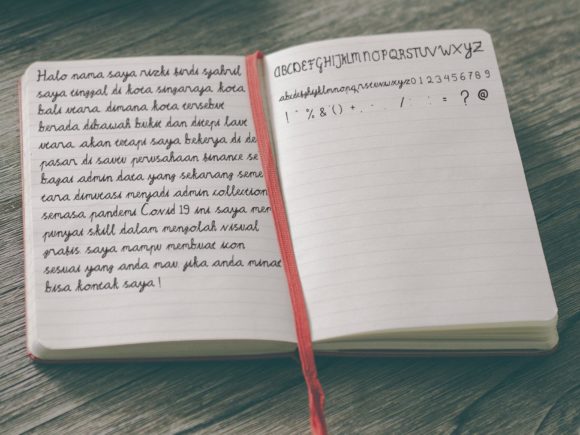 Halo nama saya rizki bindi syahril
saya tinggal di kota singaraja kota
bali utara dimana kota tersebut
berada dibawah bukit dan ditepi laut
utara. akan tetapi saya bekerja di de
pasar di suatu perusahaan binance se
bagai admin data yang sekarang seme
tara dimutasi menjadi admin collection
semasa pandemi Covid 19 ini saya mem
punyai skill dalam mengolah visual
grafis. saya mampu membuat icon
sesuai yang anda mau. jika anda minat
bisa kontak saya!
ABCDEFGHIJKLMNOPQRSTUVWXYZ
abcdefghijklmnopqrstuvwxyz0123456789
! " % & ' ( ) + , - . / : ; = ? @